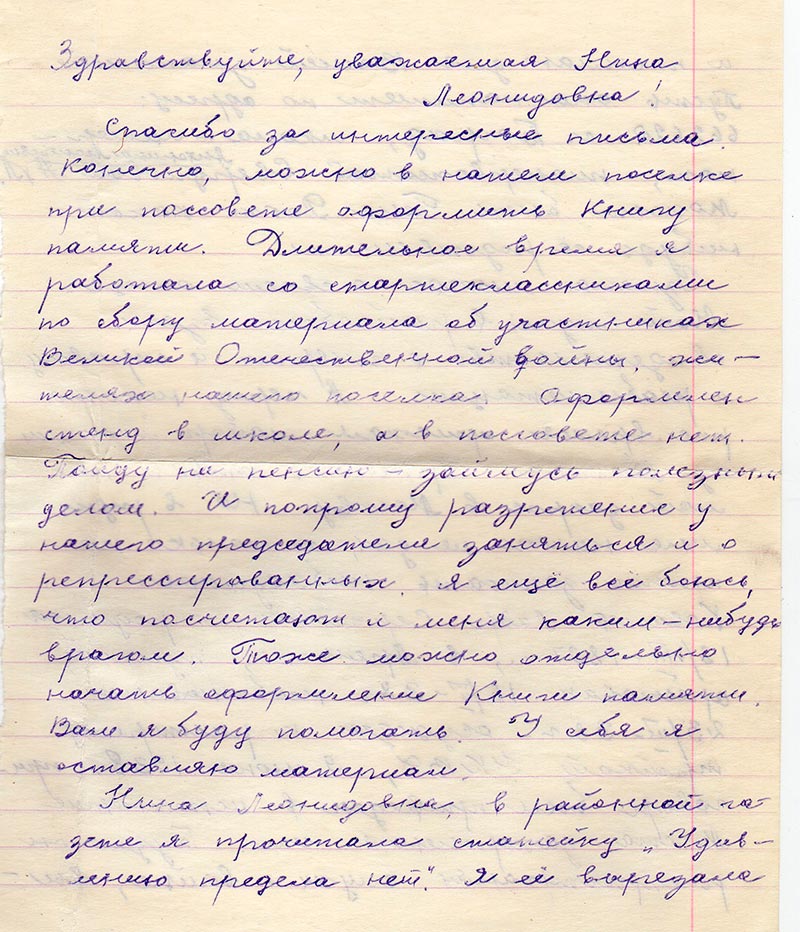 Здравствуйте, уважаемая Нина
Леонидовна!
Спасибо за интересные письма.
Конечно, можно в нашем поселке
при поссовете оформить Книгу
памяти. Длительное время я
работала со старшеклассниками
по сбору материала об участниках
Великой Отечественной войны, жи-
телях нашего поселка. Оформлен
стенд в школе, а в поссовете нет.
Пойду на пенсию – займусь полезным
делом. И попрошу разрешение у
нашего председателя заняться и о
репрессированных. Я ещё всё боюсь,
что посчитают и меня каким-нибудь
врагом. Тоже можно отдельно
начать оформление Книги памяти.
Вам я буду помогать. У себя я
оставляю материал
Нина Леонидовна, в районной га-
зете я прочитала статейку „Удив-
лению предела нет". Я её вырезала